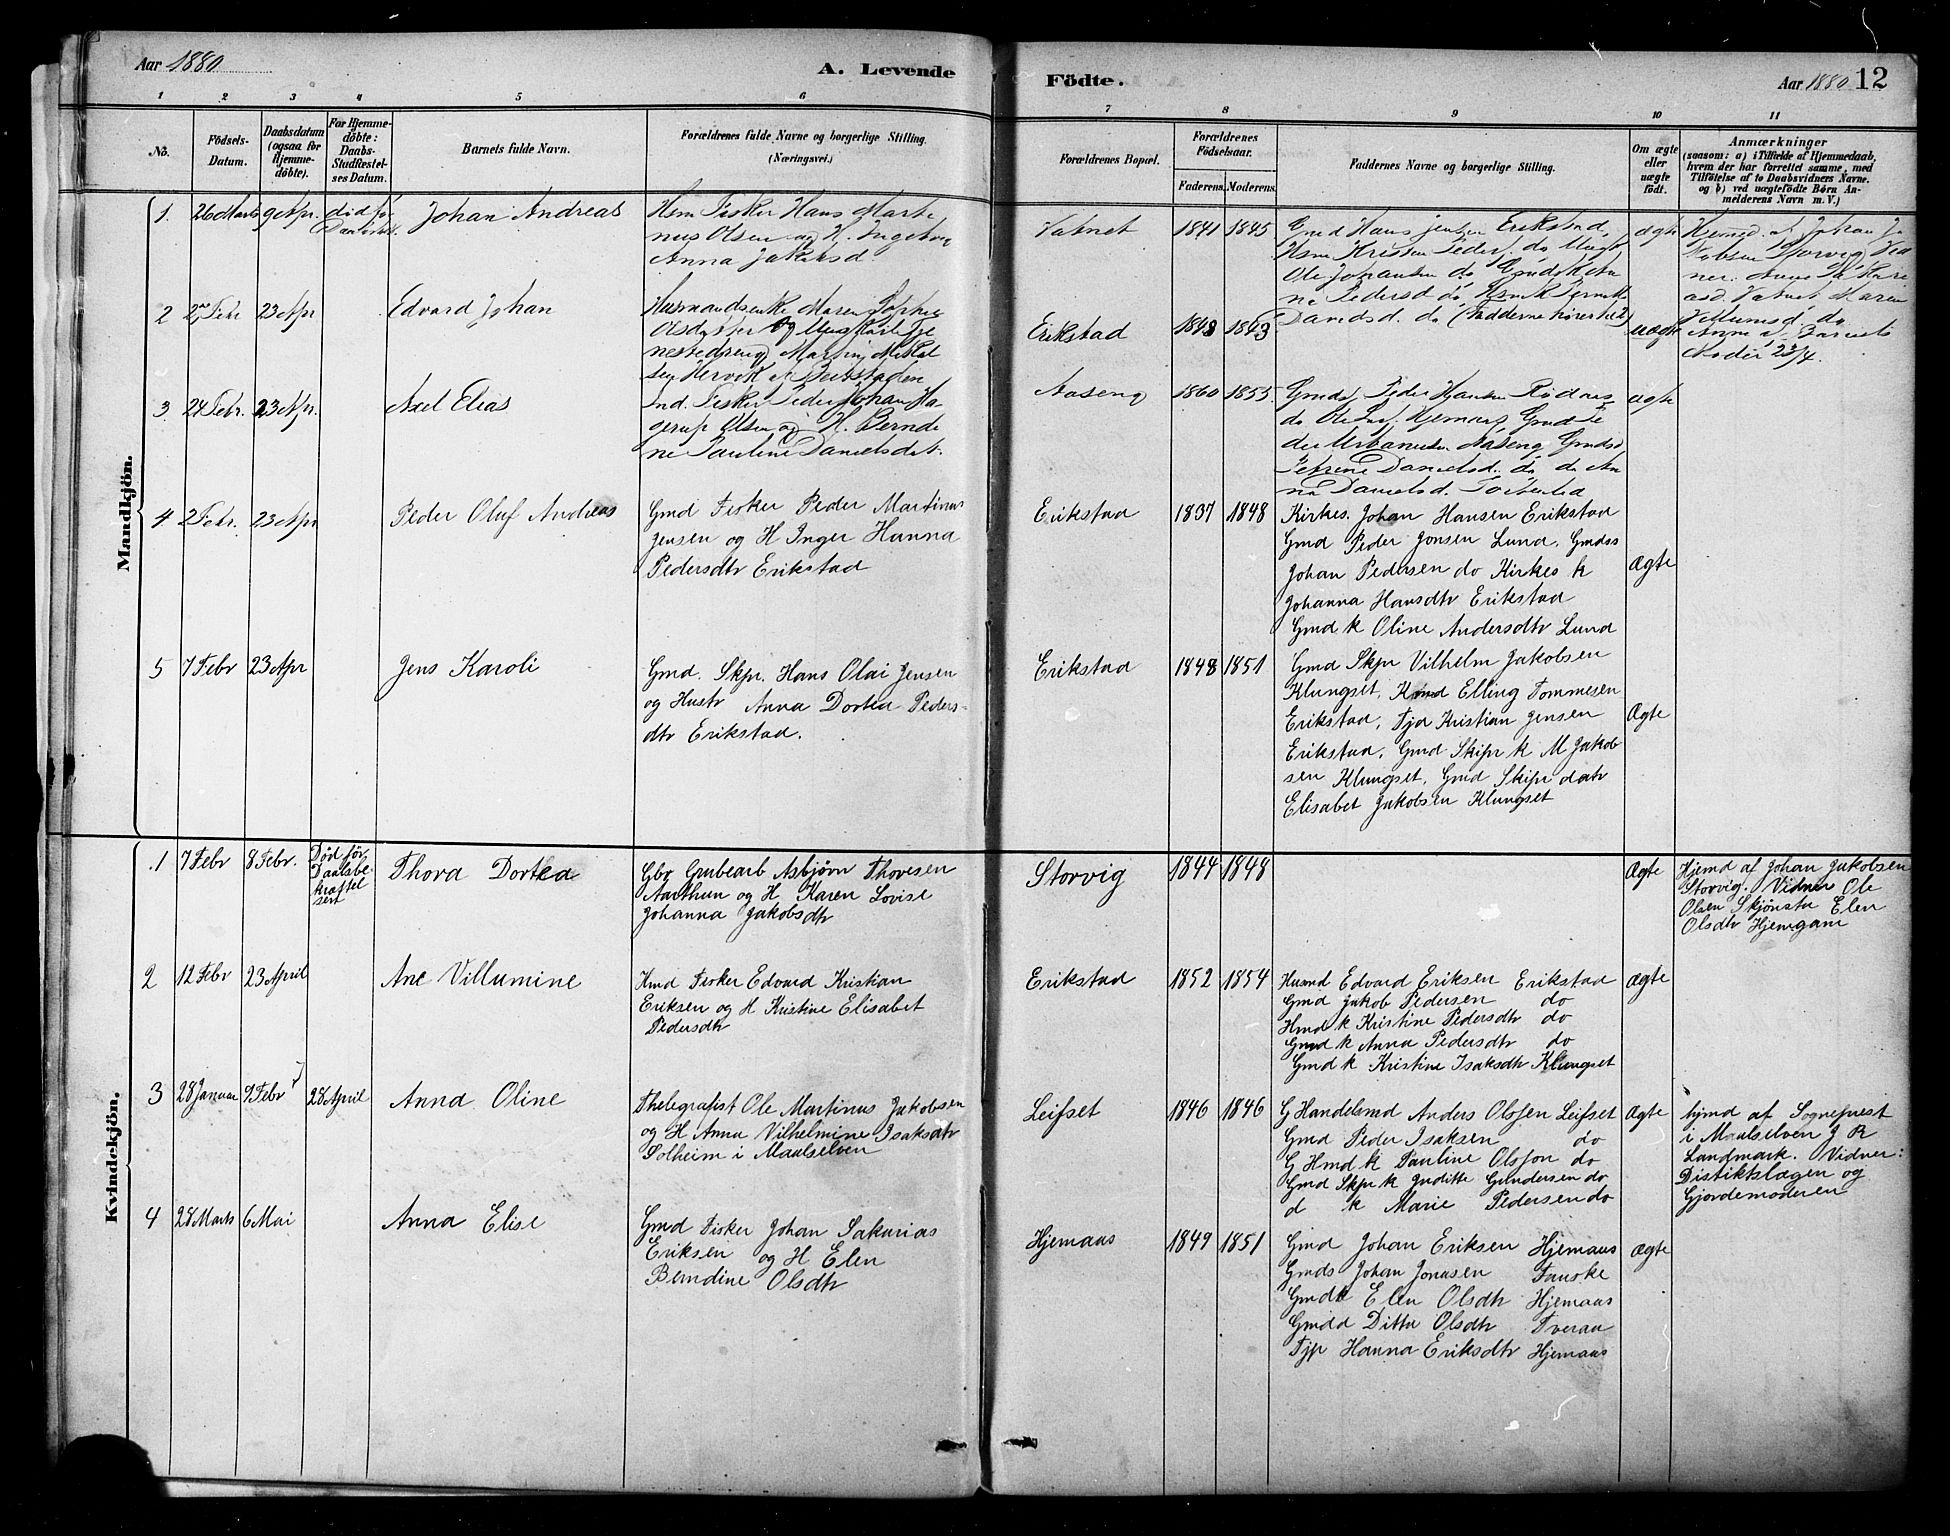 Aar 1880
A. Levende
1 2 3 4 5 6
No.
Födsels-
Datum.
Daabsdatum
(ogsaa for
Hjemme-
döbte).
For Hjemme-
döbte:
Daabs-
Stadfæstel-
ses Datum.
Barnets fulde Navn.
Forældrenes fulde Navne og borgerlige Stilling.
(Næringsvei.)
Mandkjön.
1. 26 Marts 9 Apr. död før
Johan Andreas
Hsm Fisker Hans Marti
nus Olsen og H. Ingebor
Anna Jakobsd.
2 27 Febr 23 Apr
Edvard Johan
Husmandsenke Maren Sophie
Martin Mikkel
sen Hervik
3 24 Febr. 23 Apr.
Axel Elias
Ind. Fisker Peder Johan Ha
gerup Olsen og K. Bernde
ne Pauline Danielsdat.
4 2 Febr. 23 Apr
Peder Oluf Andreas
Gmd Fisker Peder Martinus
Jensen og H Inger Hanna
Pedersdtr Erikstad
5 7 Febr 23 Apr
Jens Karoli
Gmd. Skpr. Hans Olai Jensen
og Hustr Anna Dortea Peders-
dtr Erikstad.
Kvindekjön.
1 7 Febr 8 Febr.
Død før
Daabsbe-
kræftel
sen
Thora Dortea
Gbr Grubearb Asbjørn Thovesen
Aarthun og H Karen Lovise
Johanna Jakobsdtr
2 12 Febr 23 April
Ane Villumine
Hmd Fisker Edvard Kristian
Eriksen og H Kristine Elisabet
Pedersdtr
3 28 Januar 9 Febr 28 April
Anna Oline
Thelegrafist Ole Martinus Jakobsen
og H Anna Vilhelmine Isaksdtr
Solheim i Maalselven
4 28 Marts 6 Mai
Anna Elise
Gmd Fisker Johan Sakarias
Eriksen og H Elen
Berndine Olsdtr
Födte.
Aar 1880 12
7 8 9 10 11
Forældrenes Bopæl.
Forældrenes
Födselsaar.
Faderens. Moderens.
Faddernes Navne og borgerlige Stilling.
Om ægte
eller
uægte
födt.
Anmærkninger
(saasom: a) i Tilfælde af Hjemmedaab,
hvem der har forrettet samme, med
Tilföielse af to Daabsvidners Navne.
og b) ved uægtefödte Börn An-
melderens Navn m. V.)
Vatnet 1841 1845
Gmd Hans Jensen Erikstad,
Hsm Kristen Peders. do
Ole Johansen do
ne Pedersd do
Danielsd. do
ægte
Hjemd. af Johan Ja
kobsen Storvig Vid
ner. Anne
asd. Vatnet Maren
Villumsd. do
Erikstad 1848 1843
uægte
Anm. af Barnets
Moder 23/4.
Aaseng 1860 1855
Gmd Peder Hansen Rödaas
do Ole Hjemaas Gmd Pe
der Urbanusen Aaseng Gmdsd
Petrine Danielsd. do do An
na Danielsd.
ægte
Erikstad 1837 1848
Kirkes. Johan Hansen Erikstad
Gmd Peder Jonsen Lund. Gmdss
Johan Pedersen do Kirkes k
Johanna Hansdtr Erikstad
Gmd k Oline Andersdtr Lund
Ægte
Erikstad 1848 1851
Gmd Skpr Vilhelm Jakobsen
Klungset, Kmd Elling Tommesen
Erikstad, Tjd Kristian Jensen
Erikstad, Gmd Skipr k M Jakob
sen Klungset, Gmd Skipr datr
Elisabet Jakobsen Klungset
Ægte
Storvig 1844 1848
Ægte
Hjemd af Johan Jakobsen
Storvig. Vidner Ole
Olsen Skjönsta Elen
Olsdtr Hjemgam
Erikstad 1852 1854
Husmd Edvard Eriksen Erikstad
Gmd Jakob Pedersen do
Hmd k Kristine Pedersdtr do
Gmd k Anna Pedersdtr do
Gmd k Kristine Isaksdtr Klungset
Ægte
Leifset 1846 1846
G Handelsmd Anders Olsen Leifset
Gmd Peder Isaksen do
G Hmd k Pauline Olsson do
Gmd Skpr k Juditte Gundersen do
d k Marie Pedersen do
Ægte
hjmd af Sogneprest
i Maalselven J R
Landmark. Vidner:
Distiktslægen og
Gjordemoderen
Hjemaas 1849 1851
Gmd Johan Eriksen Hjemaas
Gmds Johan Jonasen Fauske
Gmdk Elen Olsdtr Hjemaas
Gmdd Ditta Olsdtr Tveraa
Tjp Hanna Eriksdtr Hjemaas
Ægte